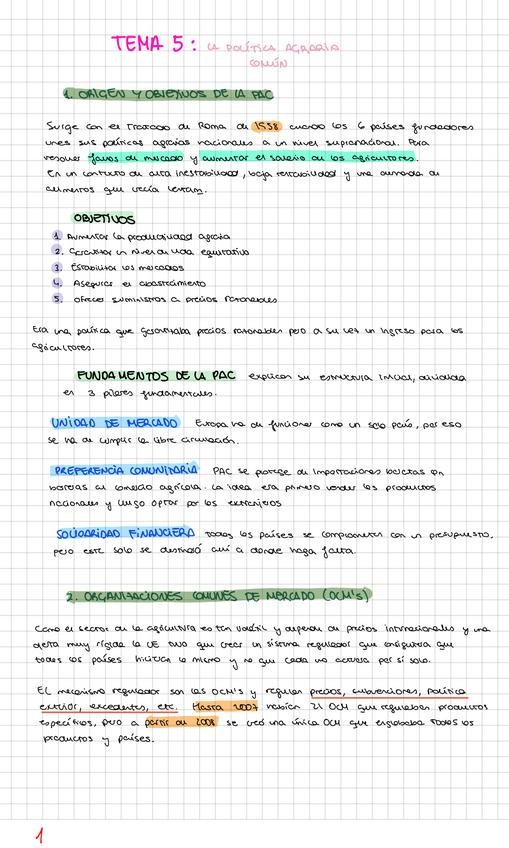 TEMA 5: LA POLÍTICA AGRARIA
COMÚN
1. ORIGEN Y OBJETIVOS DE LA PAC
Surge con el Tratado de Roma de 1958 cuando los 6 países fundadores
unes sus políticas agrarias nacionales a un nivel supranacional. Para
resolver fallos de mercado y aumentar el salario de los agricultores.
En un contexto de alta inestabilidad, baja rentabilidad y una demanda de
alimentos que crecía lentam.
OBJETIVOS
1. Aumentar la productividad agraria
2. Garantizar un nivel de vida equitativo
3. Estabilizar los mercados
4. Asegurar el abastecimiento
5. Ofrecer suministros a precios razonables
Era una política que garantizaba precios razonables pero a su vez un ingreso para los
agricultores.
FUNDAMENTOS DE LA PAC explican su estructura inicial, dividida
en 3 pilares fundamentales.
UNIDAD DE MERCADO Europa ha de funcionar como un solo país, por eso
se ha de cumplir la libre circulación.
PREFERENCIA COMUNITARIA PAC se protege de importaciones baratas con
barreras al comercio agrícola. La idea era primero vender los productos
nacionales y luego optar por los extranjeros
SOLIDARIDAD FINANCIERA Todos los países se comprometen con un presupuesto,
pero este solo se destinó allí a donde haga falta.
2. ORGANIZACIONES COMUNES DE MERCADO (OCM's)
Como el sector de la agricultura es tan volátil y depende de precios internacionales y una
oferta muy rígida la UE tuvo que crear un sistema regulador que
todos los países hiciera lo mismo y no que cada uno actuara por si solo.
El mecanismo regulador son las OCM's y regulan precios, subvenciones, política
exterior, excedentes, etc. Hasta 2007 habían 21 OCM que regulaban productos
específicos, pero a partir de 2008 se creó una única OCM que englobaba todos los
productos y países.
1